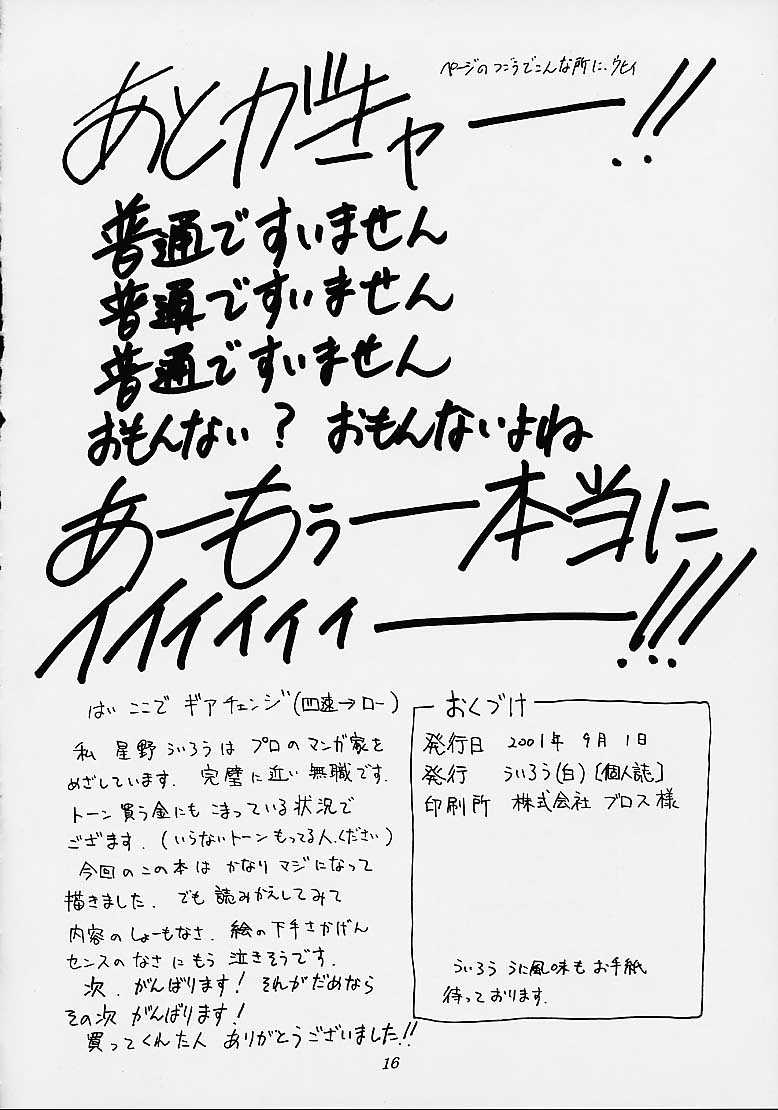 ページのつごうでこんな所に、ウヒィ
あとがキャー――!!
普通ですいません
普通ですいません
普通ですいません
おもんない? おもんないよね
あーもぅ――本当に
イイイィィィ―――!!!
はい ここで ギアチェンジ(四速→ロー)
私 星野ういろうは プロのマンガ家を
めざしています. 完璧に近い無職です.
トーン買う金にも こまっている状況で
ござます. (いらないトーンもってる人、ください)
今回のこの本は かなりマジになって
描きました. でも 読みかえしてみて
内容のしょーもなさ. 絵の下手さかげん
センスのなさにもう 泣きそうです.
次. がんばります! それがだめなら
その次 がんばります!
買ってくれた人 ありがとうございました!!
おくづけ
発行日 2001年 9月1日
発行 ういろう(白)[個人誌]
印刷所 株式会社 ブロス様
ういろう うに風味も お手紙
待っております.
16